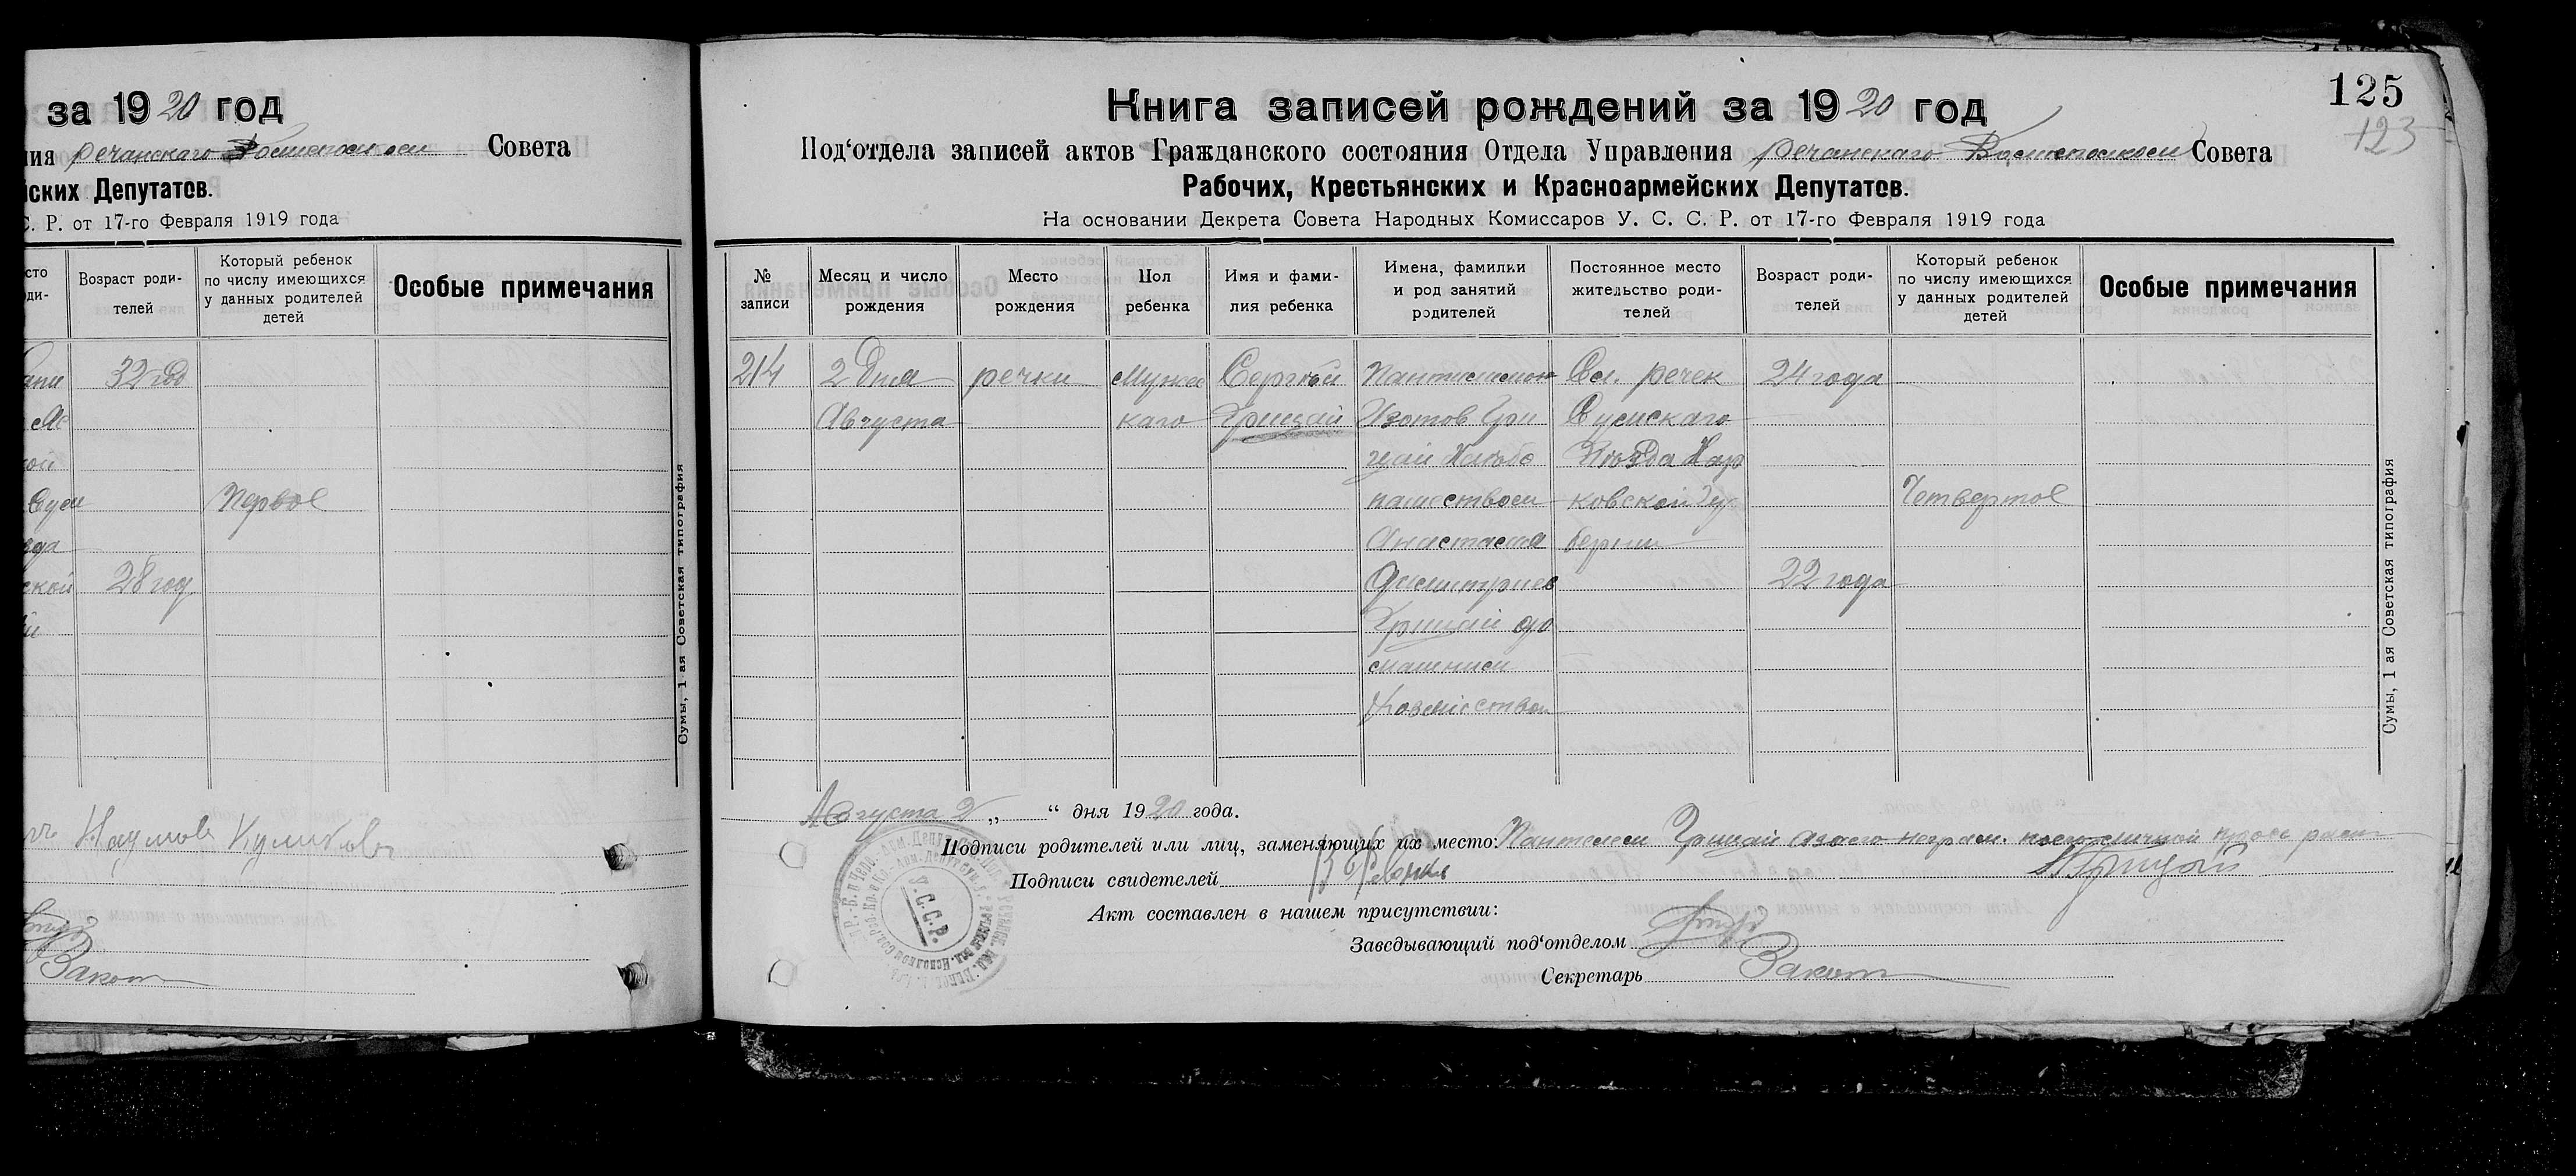 за 1920 год
речанского Совета
йских Депутатов.
С. Р. от 17-го Февраля 1919 года
Возраст роди-
телей
Который ребенок
по числу имеющихся
у данных родителей
детей
Особые примечания
32
Первое
28 год
Наумов Куликов
Сумы, 1-ая Советская типография
125
123
Книга записей рождений за 1920 год
Под‘отдела записей актов Гражданского состояния Отдела Управления речанскаго Совета
Рабочих, Крестьянских и Красноармейских Депутатов.
На основании Декрета Совета Народных Комиссаров У. С. С. Р. от 17-го Февраля 1919 года
№
записи
Месяц и число
рождения
Место
рождения
Пол
ребенка
Имя и фами-
лия ребенка
Имена, фамилии
и род занятий
родителей
Постоянное место
жительство роди-
телей
Возраст роди-
телей
Который ребенок
по числу имеющихся
у данных родителей
детей
Особые примечания
214
2 дня
Августа
речки
Мужес
каго
Сергей
Грицай
Изотов Гри
цай Хлебо
пашеством
Анастасия
Димитриев
Грицай до
машним
Хозяйством
Сл. речек
Сумскаго
Уезда Хар
ковской Гу
бернии
24 года
22 года
Четвертое
Сумы, 1 ая Советская типография
Августа 2 „ “ дня 1920 года.
Подписи родителей или лиц, заменяющих их место: Грицай
Грицай
Подписи свидетелей
Акт составлен в нашем присутствии:
Заведывающий под‘отделом
Секретарь
У.С.С.Р.